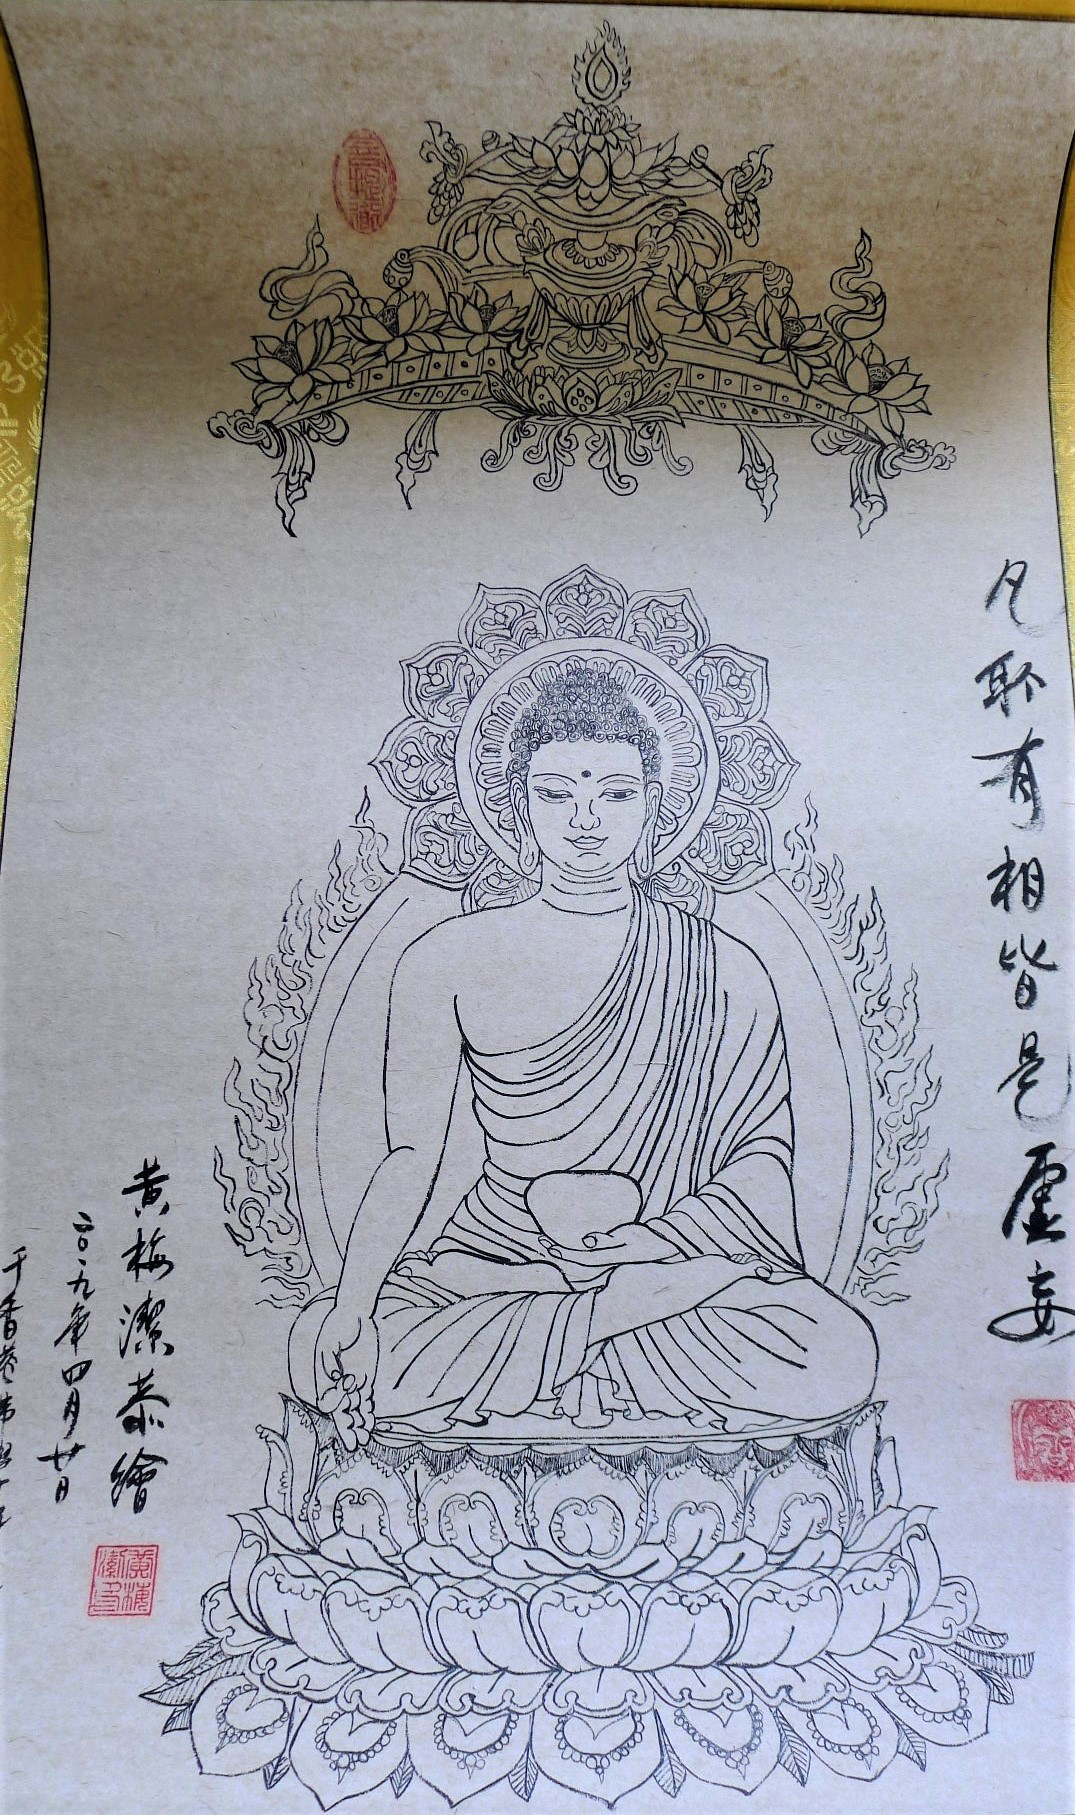 凡所有相皆是虛妄
黃梅潔恭繪
二〇一九年四月廿日